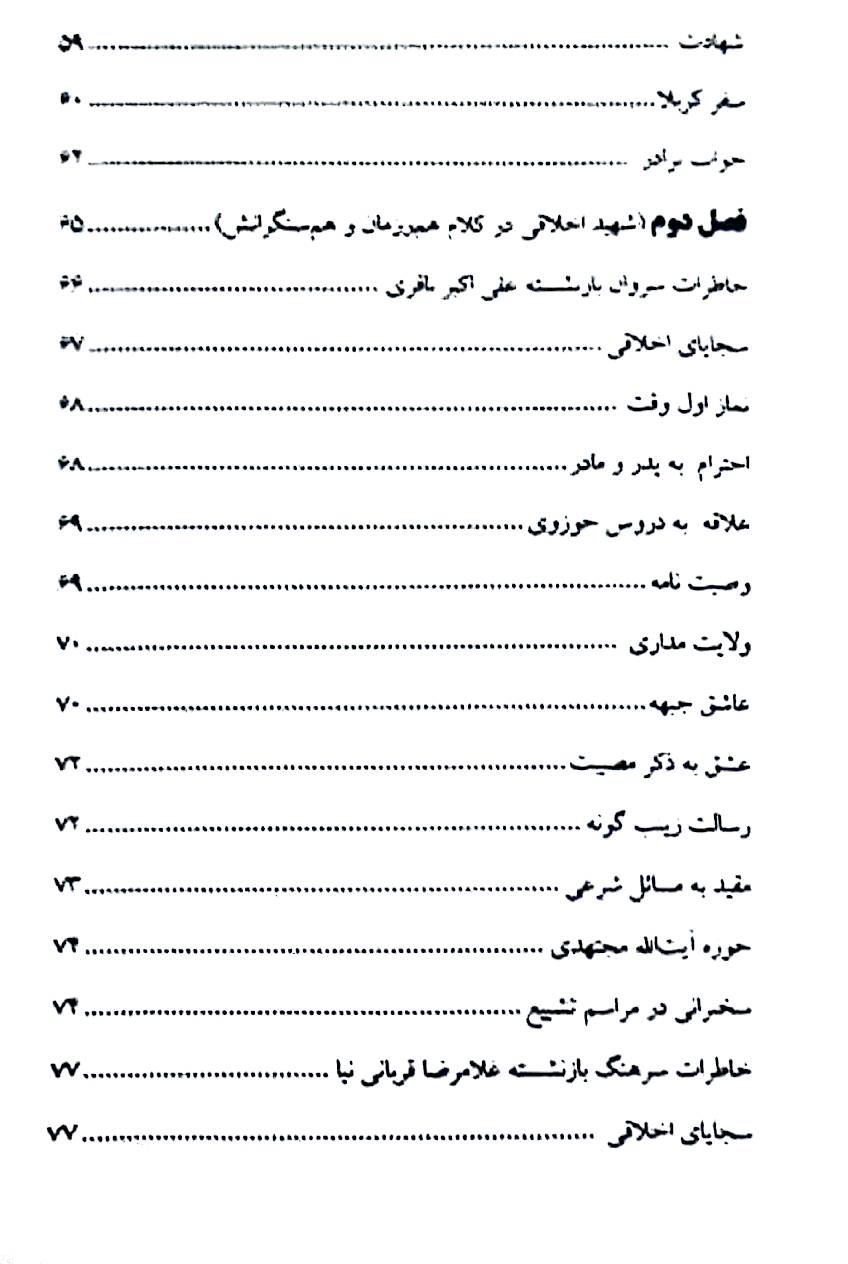 شهادت ........ ۵۹
سفر کربلا ........ ۶۰
خواب برادر ........ ۶۲
فصل دوم (شهید اخلاقی در کلام همرزمان و هم‌سنگرانش) ........ ۶۵
خاطرات سروان بازنشسته علی اکبر باقری ........ ۶۶
سجایای اخلاقی ........ ۶۷
نماز اول وقت ........ ۶۸
احترام به پدر و مادر ........ ۶۸
علاقه به دروس حوزوی ........ ۶۹
وصیت نامه ........ ۶۹
ولایت مداری ........ ۷۰
عاشق جبهه ........ ۷۰
عشق به ذکر مصیبت ........ ۷۲
رسالت زینب گونه ........ ۷۲
مقید به مسائل شرعی ........ ۷۳
حوزه آیت‌الله مجتهدی ........ ۷۴
سخنرانی در مراسم تشییع ........ ۷۴
خاطرات سرهنگ بازنشسته غلامرضا قربانی نیا ........ ۷۷
سجایای اخلاقی ........ ۷۷